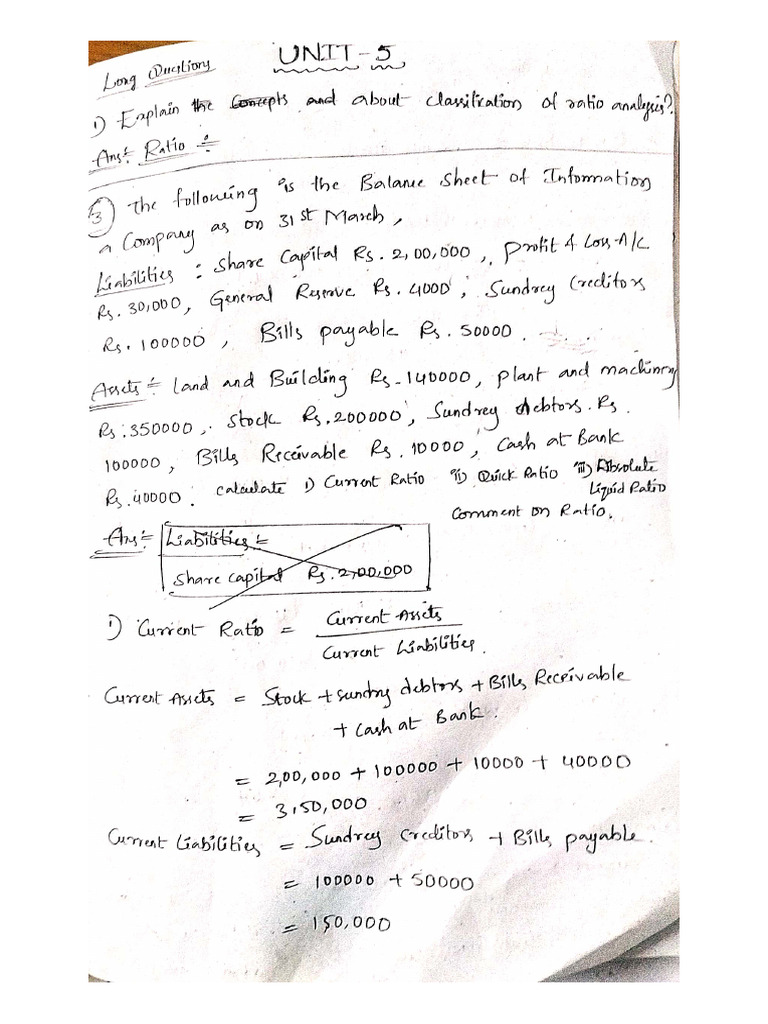 Long Questions
UNIT-5
1) Explain the Concepts and about classification of ratio analysis?
Ans:- Ratio :-
3 The following is the Balance sheet of Information
a Company as on 31st March,
Liabilities : Share Capital Rs. 2,00,000, Profit & Loss A/C
Rs. 30,000, General Reserve Rs. 4000, Sundrey Creditors
Rs. 100000, Bills payable Rs. 50000.
Assets:- Land and Building Rs-140000, plant and machinery
Rs.350000, stock Rs.200000, Sundrey debtors. Rs.
100000, Bills Receivable Rs. 10000, Cash at Bank
Rs.40000. calculate i) Current Ratio ii) Quick Ratio iii) Absolute
Liquid Ratio
Comment on Ratio.
Ans:- Liabilities :-
Share capital Rs. 2,00,000
1) Current Ratio = Current Assets
Current Liabilities.
Current Assets = Stock + sundry debtors + Bills Receivable
+ Cash at Bank.
= 2,00,000 + 100000 + 10000 + 40000
= 3,50,000
Current Liabilities = Sundrey Creditors + Bills payable.
= 100000 + 50000
= 150,000